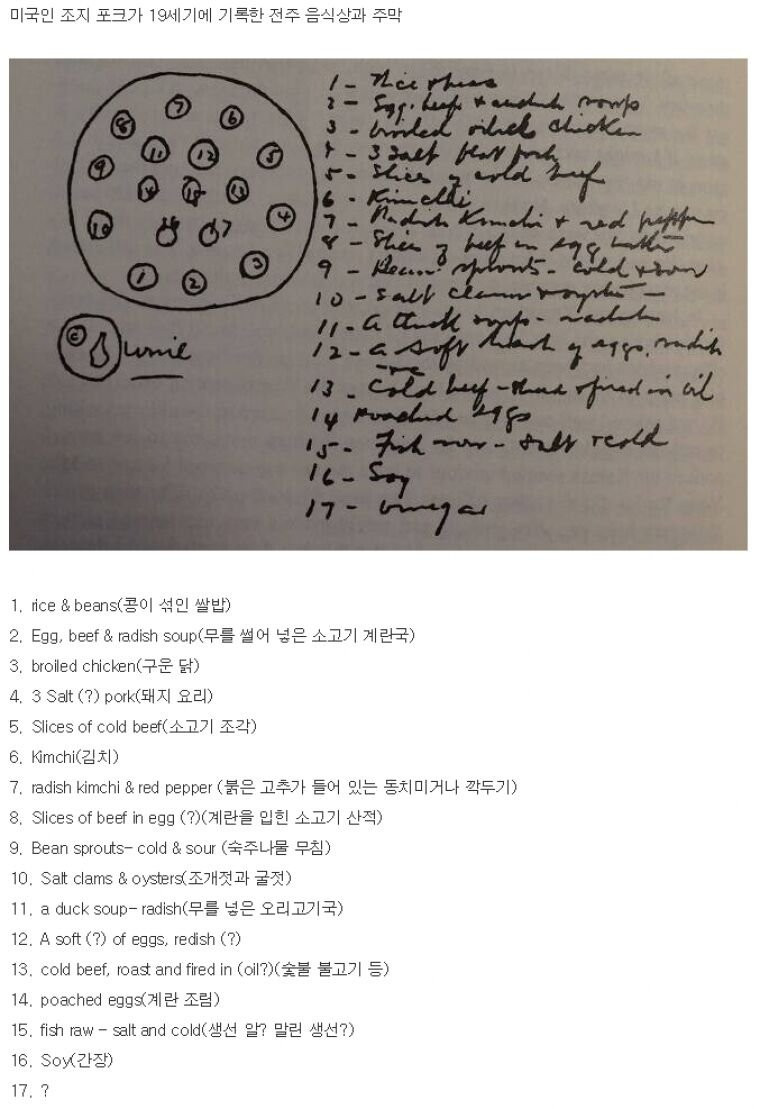 미국인 조지 포크가 19세기에 기록한 전주 음식상과 주막
7
6
8
11
12
5
9
14
15
13
10
16
17
4
3
1
2
wine
1 - Rice & beans
2 - Egg, beef & radish soup
3 - broiled chicken
4 - 3 Salt
5 - Slices of cold beef
6 - Kimchi
7 - Radish Kimchi & red pepper
8 - Slices of beef in egg batter
9 - Bean sprouts - cold & sour
10 - Salt clams & oysters -
11 - A duck soup - radish
12 - A soft of eggs, radish
13 - Cold beef - & fried in oil
14 Poached eggs
15 - Fish - salt & cold
16 - Soy
17 - Vinegar
1. rice & beans(콩이 섞인 쌀밥)
2. Egg, beef & radish soup(무를 썰어 넣은 소고기 계란국)
3. broiled chicken(구운 닭)
4. 3 Salt (?) pork(돼지 요리)
5. Slices of cold beef(소고기 조각)
6. Kimchi(김치)
7. radish kimchi & red pepper (붉은 고추가 들어 있는 동치미거나 깍두기)
8. Slices of beef in egg (?)(계란을 입힌 소고기 산적)
9. Bean sprouts- cold & sour (숙주나물 무침)
10. Salt clams & oysters(조개젓과 굴젓)
11. a duck soup- radish(무를 넣은 오리고기국)
12. A soft (?) of eggs, redish (?)
13. cold beef, roast and fired in (oil?)(숯불 불고기 등)
14. poached eggs(계란 조림)
15. fish raw - salt and cold(생선 알? 말린 생선?)
16. Soy(간장)
17. ?